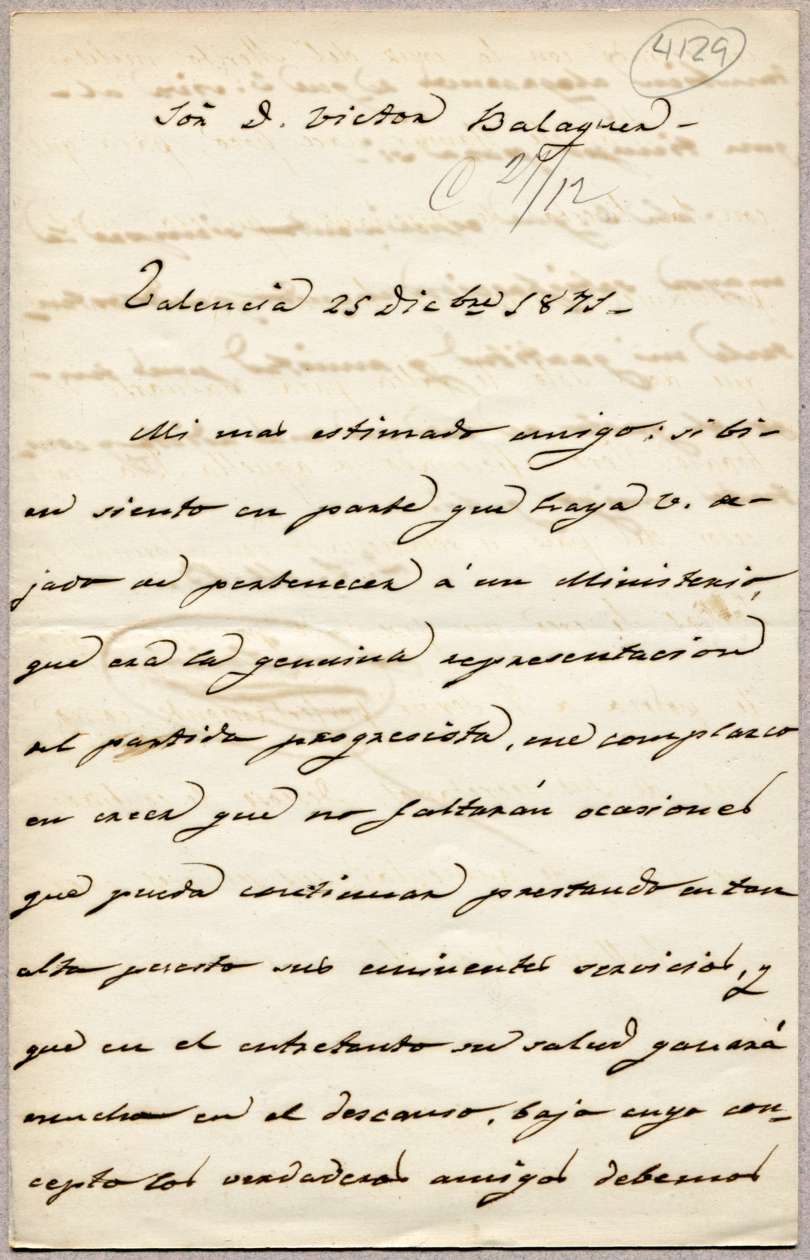 4129
Sor. D. Victor Balaguer -
C 27/12
Valencia 25 Dicbre 1871 -
Mi mas estimado amigo: si bi-
en siento en parte que haya V. de-
jado de pertenecer á un Ministerio,
que era la genuina representacion
del partido progresista, me complazco
en creer que no faltarán ocasiones
que pueda continuar prestando en tan
alto puesto sus eminentes servicios, y
que en el entretanto su salud ganará
mucho en el descanso, bajo cuyo con-
cepto los verdaderos amigos debemos